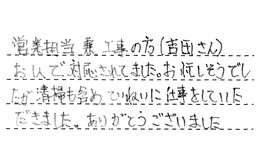 営業担当兼工事の方(吉田さん)
お1人で対応されてました。お忙しそうでし
たが清掃も含めていねいに仕事をしていた
だきました。ありがとうございました